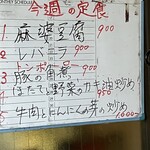 今週の定食
1 麻婆豆腐 900
2 レバニラ 900
3 豚の角煮
4 ほたてと野菜のカキ油炒め
5 牛肉とにんにくの芽の炒め 1,000